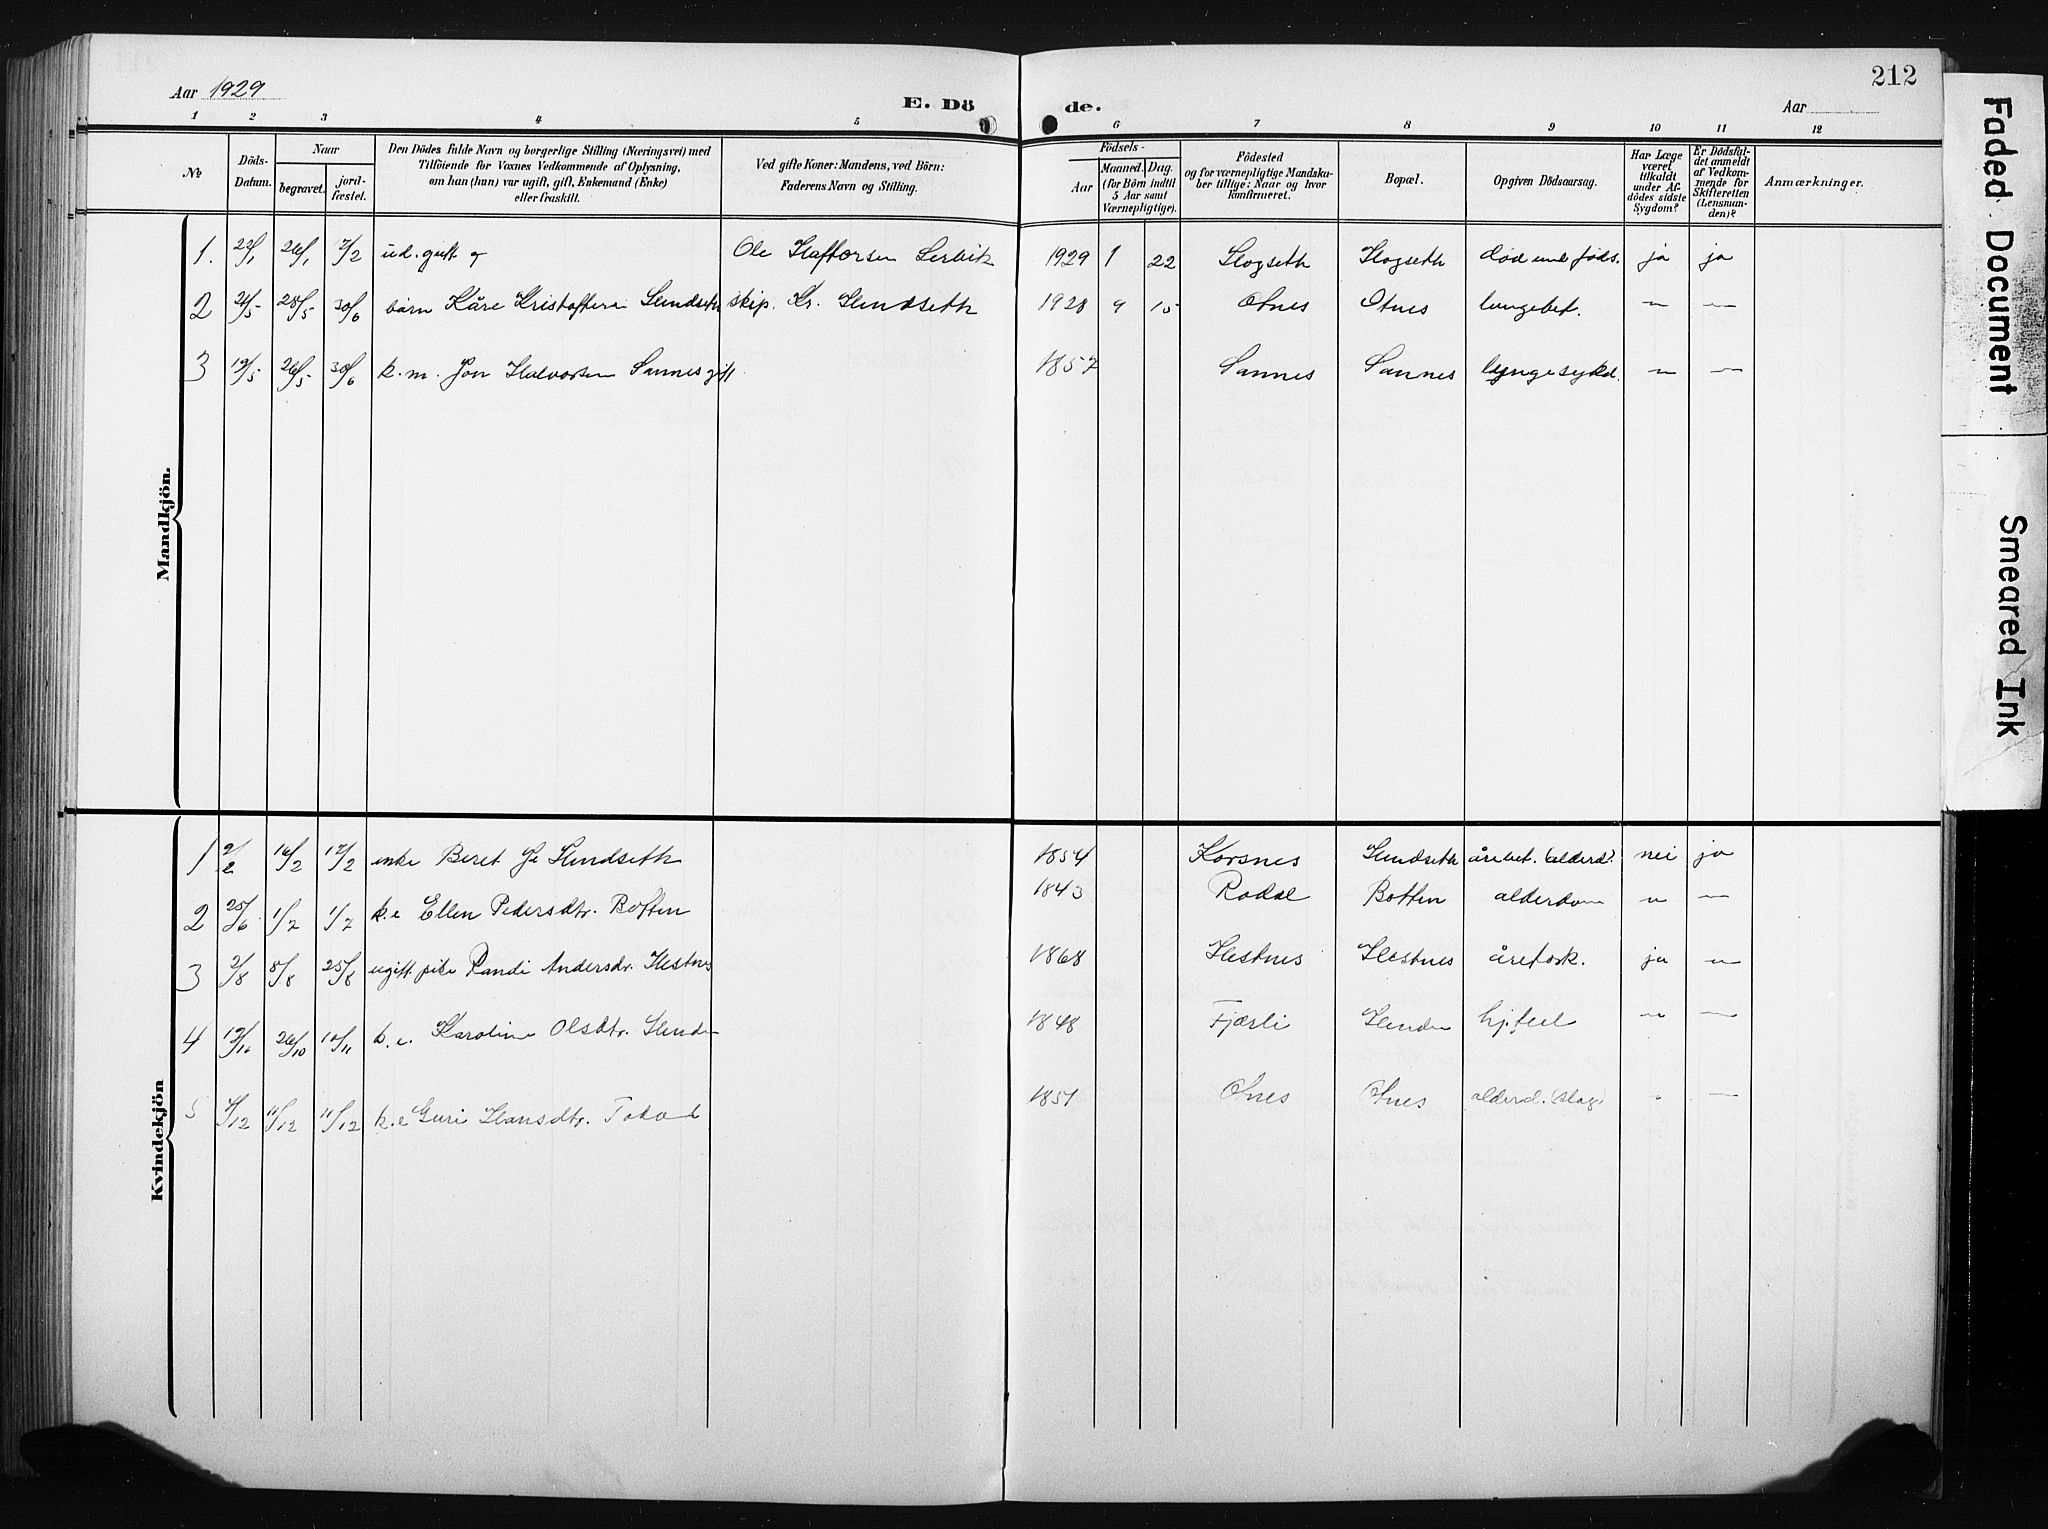 212
Aar 1929
E. Dö de.
Aar
1 2 3 4 5 6 7 8 9 10 11 12
№
Döds-Datum.
Naar
begravet.
jord-fæstet.
Den Dödes fulde Navn og borgerlige Stilling (Næringsvei) med
Tilföiende for Voxnes Vedkommende af Oplysning,
om han (hun) var ugift, gift, Enkemand (Enke)
eller fraskilt.
Ved gifte Koner: Mandens, ved Börn:
Faderens Navn og Stilling.
Födsels-
Aar
Maaned. Dag.
(for Börn indtil
5 Aar samt
Værnepligtige).
Födested
og for værnepligtige Mandska-
ber tillige: Naar og hvor
konfirmeret.
Bopæl.
Opgiven Dödsaarsag.
Har Læge
været
tilkaldt
under Af-
dödes sidste
Sygdom?
Er Dödsfal-
det anmeldt
af Vedkom-
mende for
Skifteretten
(Lensman-
den)?
Anmærkninger.
Mandkjön.
1. 22/1 26/1 7/2 ud. gutt Ole 1929 1 22 ja ja
2 21/5 28/5 30/6 barn Kåre skip. Kr. 1928 9 15 Otnes Otnes lungebet. " —
3 19/5 26/5 30/6 k.m. Jon Halvorsen Sannes gift 1857 Sannes Sannes lungesykd. " —
Kvindekjön
1 9/2 16/2 17/2 enke Beret 1854 Korsnes nei ja
2 25/6 1/7 1/7 k.e Ellen Pedersdtr. Botten 1843 Rodal Botten alderdom " —
3 2/8 8/8 25/8 ugift pike Randi Andersdr. Hestnes 1868 Hestnes Hestnes årefork. ja "
4 26/10 10/11 k.e. Karoline Olsdtr. 1848 Fjærli hj.feil " —
5 11/12 11/12 k.e Guri Hansdtr. 1851 Otnes Otnes alderd. (slag) " —
Faded Document
Smeared Ink